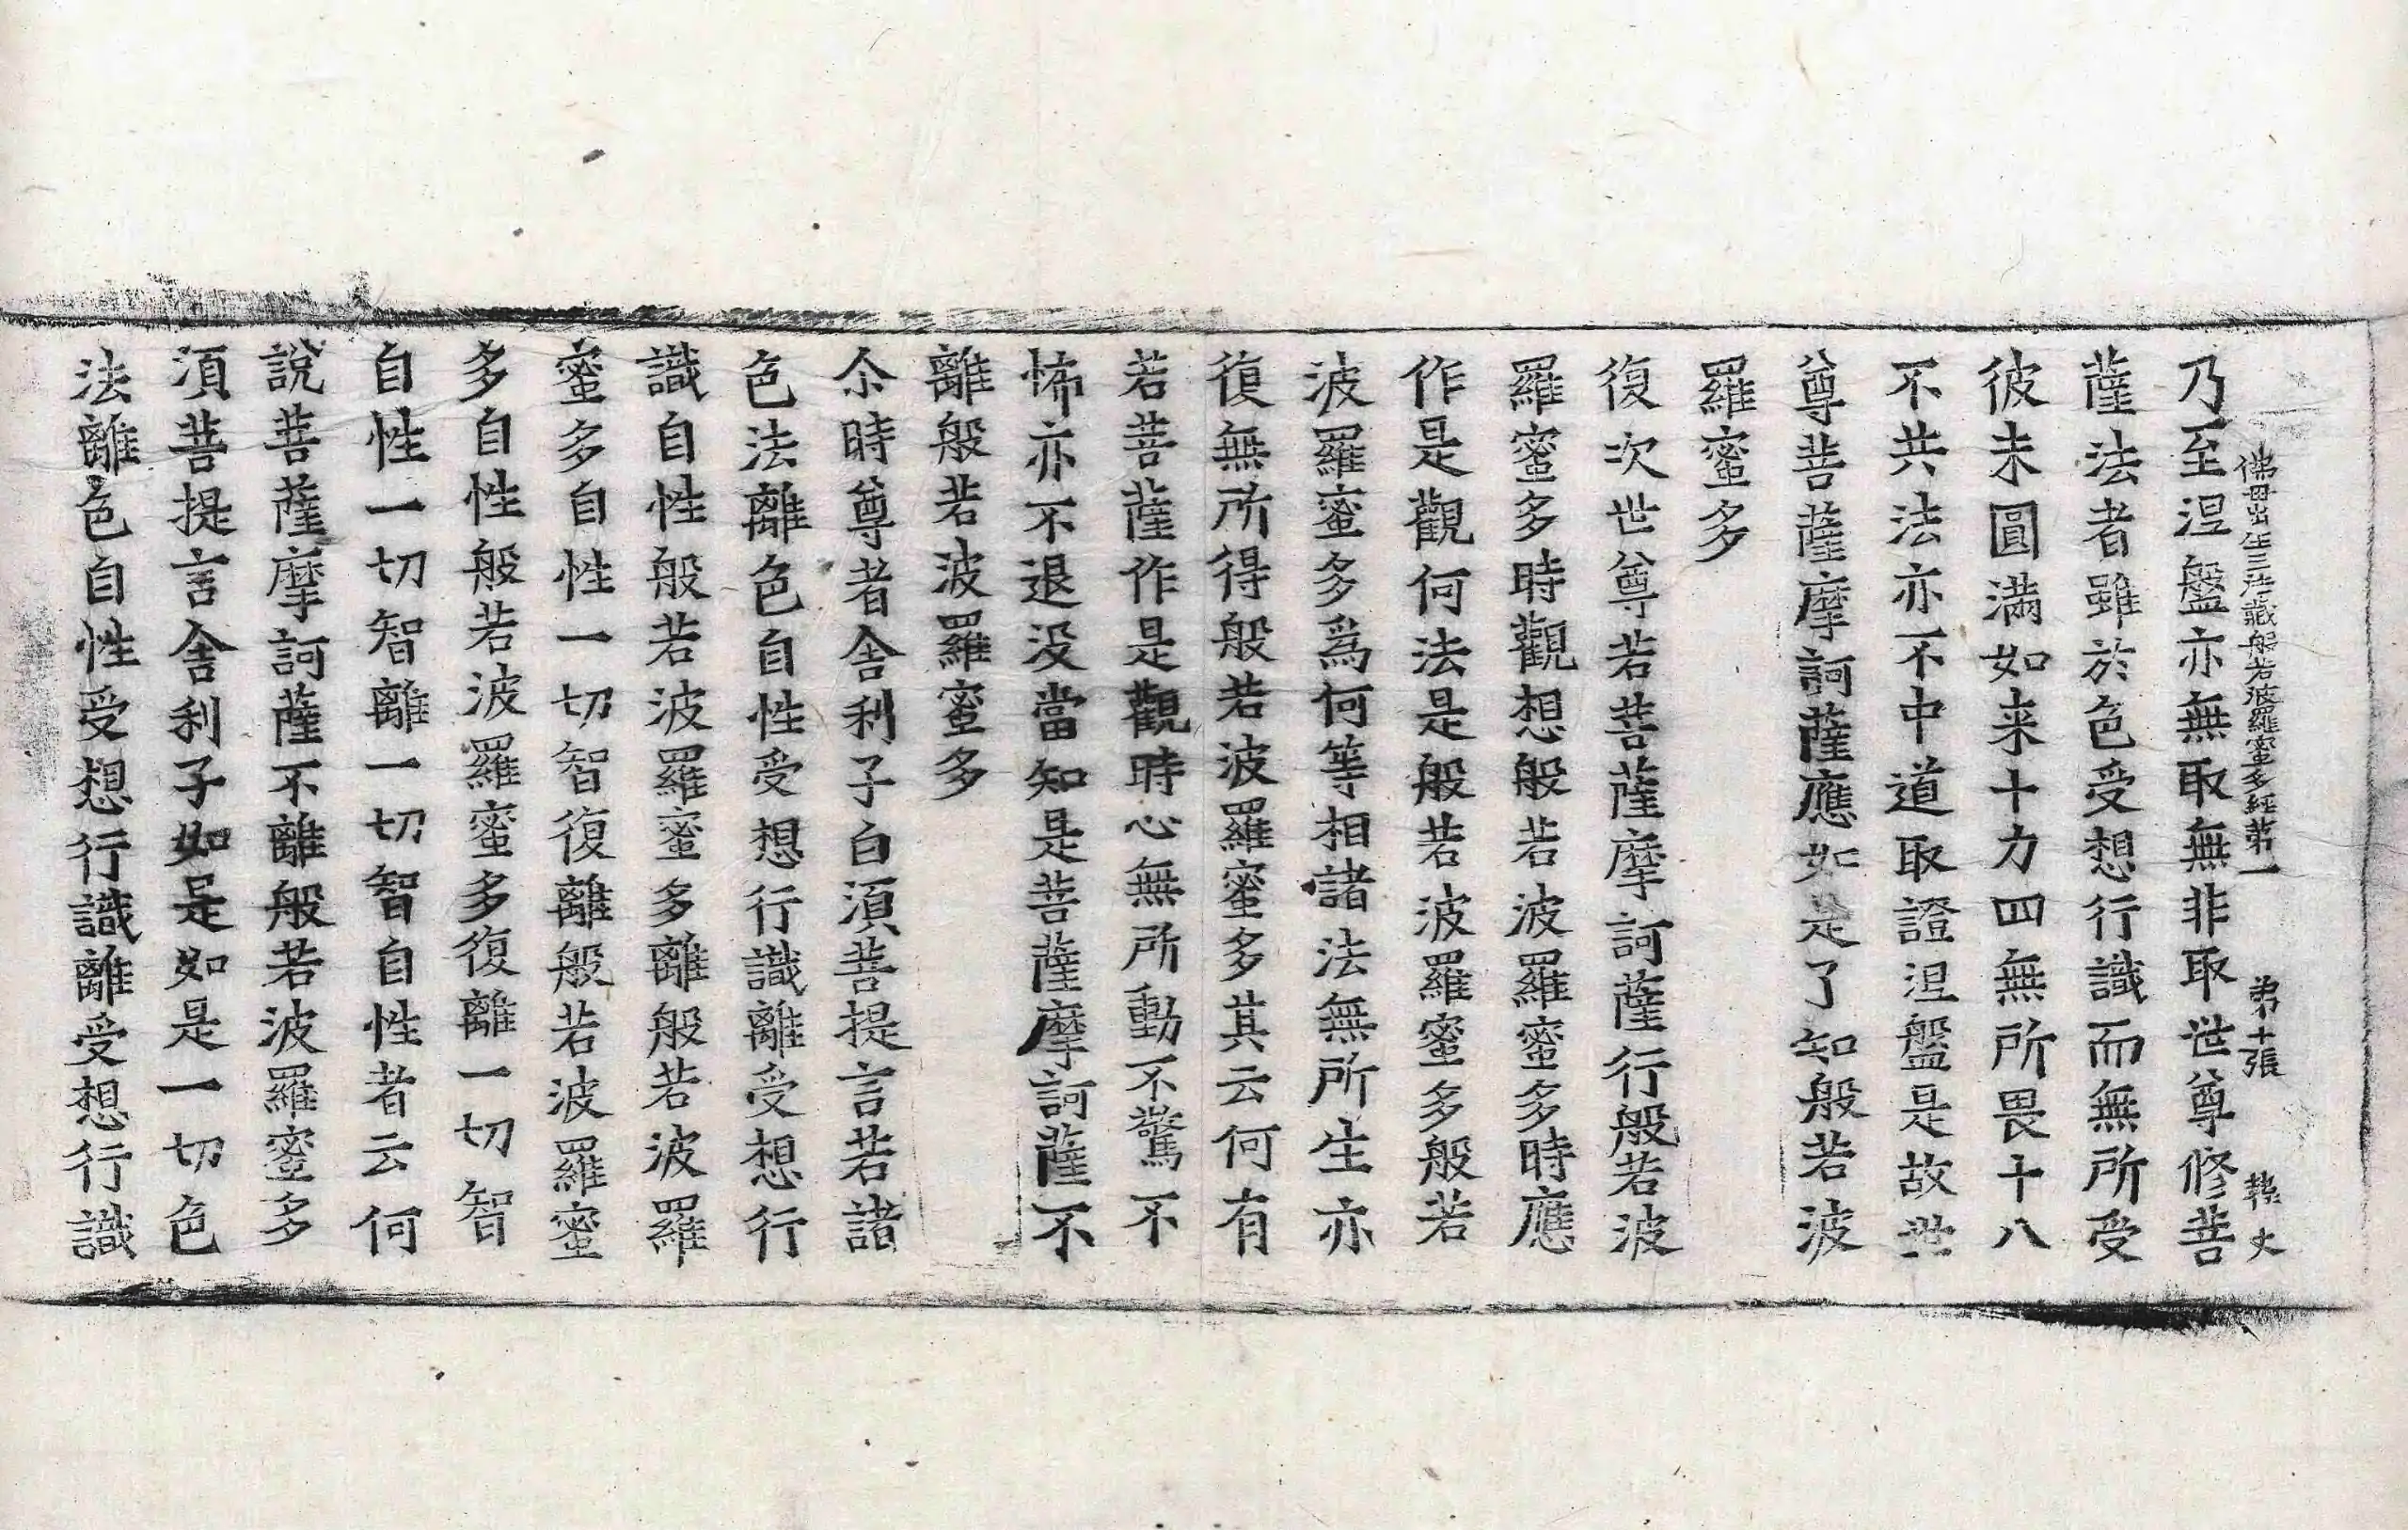 佛母出生三法藏般若波羅蜜多經第一 第十張 㓻丈
乃至涅盤亦無取無非取世尊修菩
薩法者雖於色受想行識而無所受
彼未圓滿如来十力四無所畏十八
不共法亦不中道取證涅盤是故世
尊菩薩摩訶薩應如是了知般若波
羅蜜多
復次世尊若菩薩摩訶薩行般若波
羅蜜多時觀想般若波羅蜜多時應
作是觀何法是般若波羅蜜多般若
波羅蜜多爲何等相諸法無所生亦
復無所得般若波羅蜜多其云何有
若菩薩作是觀時心無所動不驚不
怖亦不退没當知是菩薩摩訶薩不
離般若波羅蜜多
尒時尊者舍利子白須菩提言若諸
色法離色自性受想行識離受想行
識自性般若波羅蜜多離般若波羅
蜜多自性一切智復離般若波羅蜜
多自性般若波羅蜜多復離一切智
自性一切智離一切智自性者云何
說菩薩摩訶薩不離般若波羅蜜多
須菩提言舍利子如是如是一切色
法離色自性受想行識離受想行識